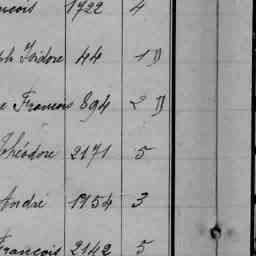 ncois 1722 4
ph Isidore 44 1 D
e Francois 894 2 D
Théodore 2171 5
André 1154 3
Francois 2142 5